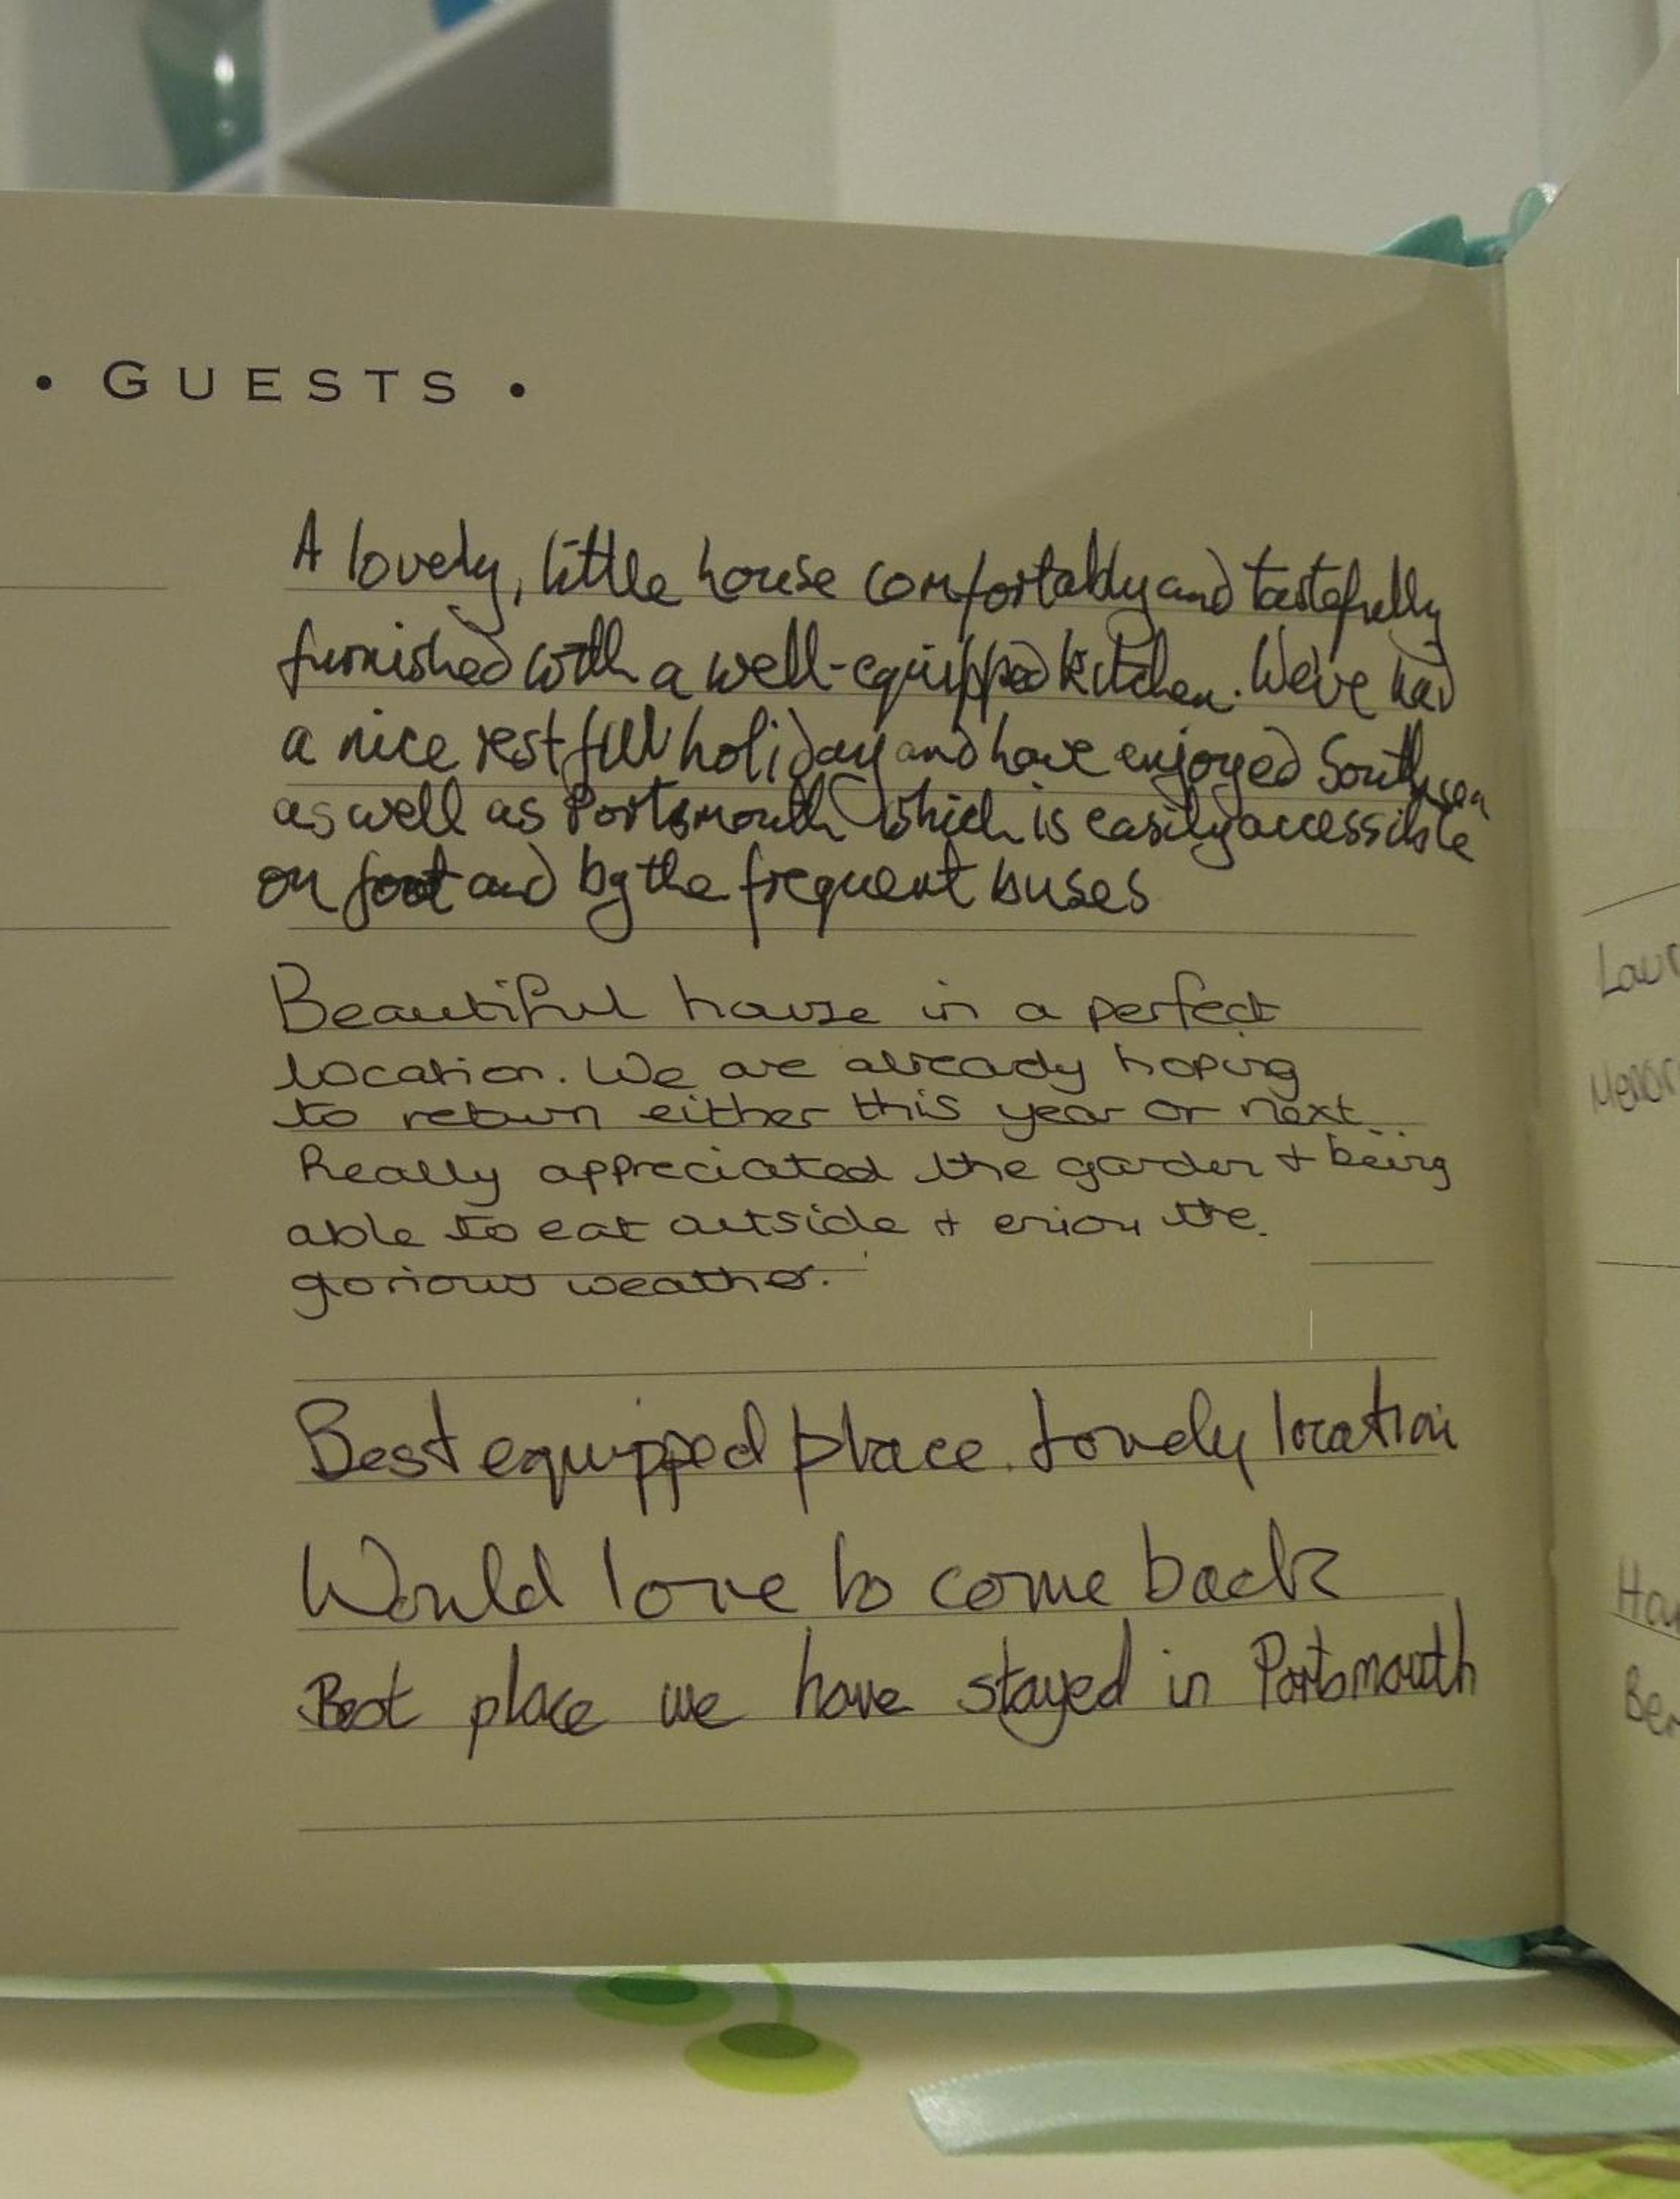 • GUESTS •
A lovely, little house comfortably and tastefully
furnished with a well-equipped kitchen. We've had
a nice restful holiday and have enjoyed Southsea
as well as Portsmouth which is easily accessible
on foot and by the frequent buses
Beautiful house in a perfect
location. We are already hoping
to return either this year or next.
Really appreciated the garden + being
able to eat outside + enjoy the
glorious weather.
Best equipped place. Lovely location
Would love to come back
Best place we have stayed in Portsmouth
Laur
Memor
Hou
Ber